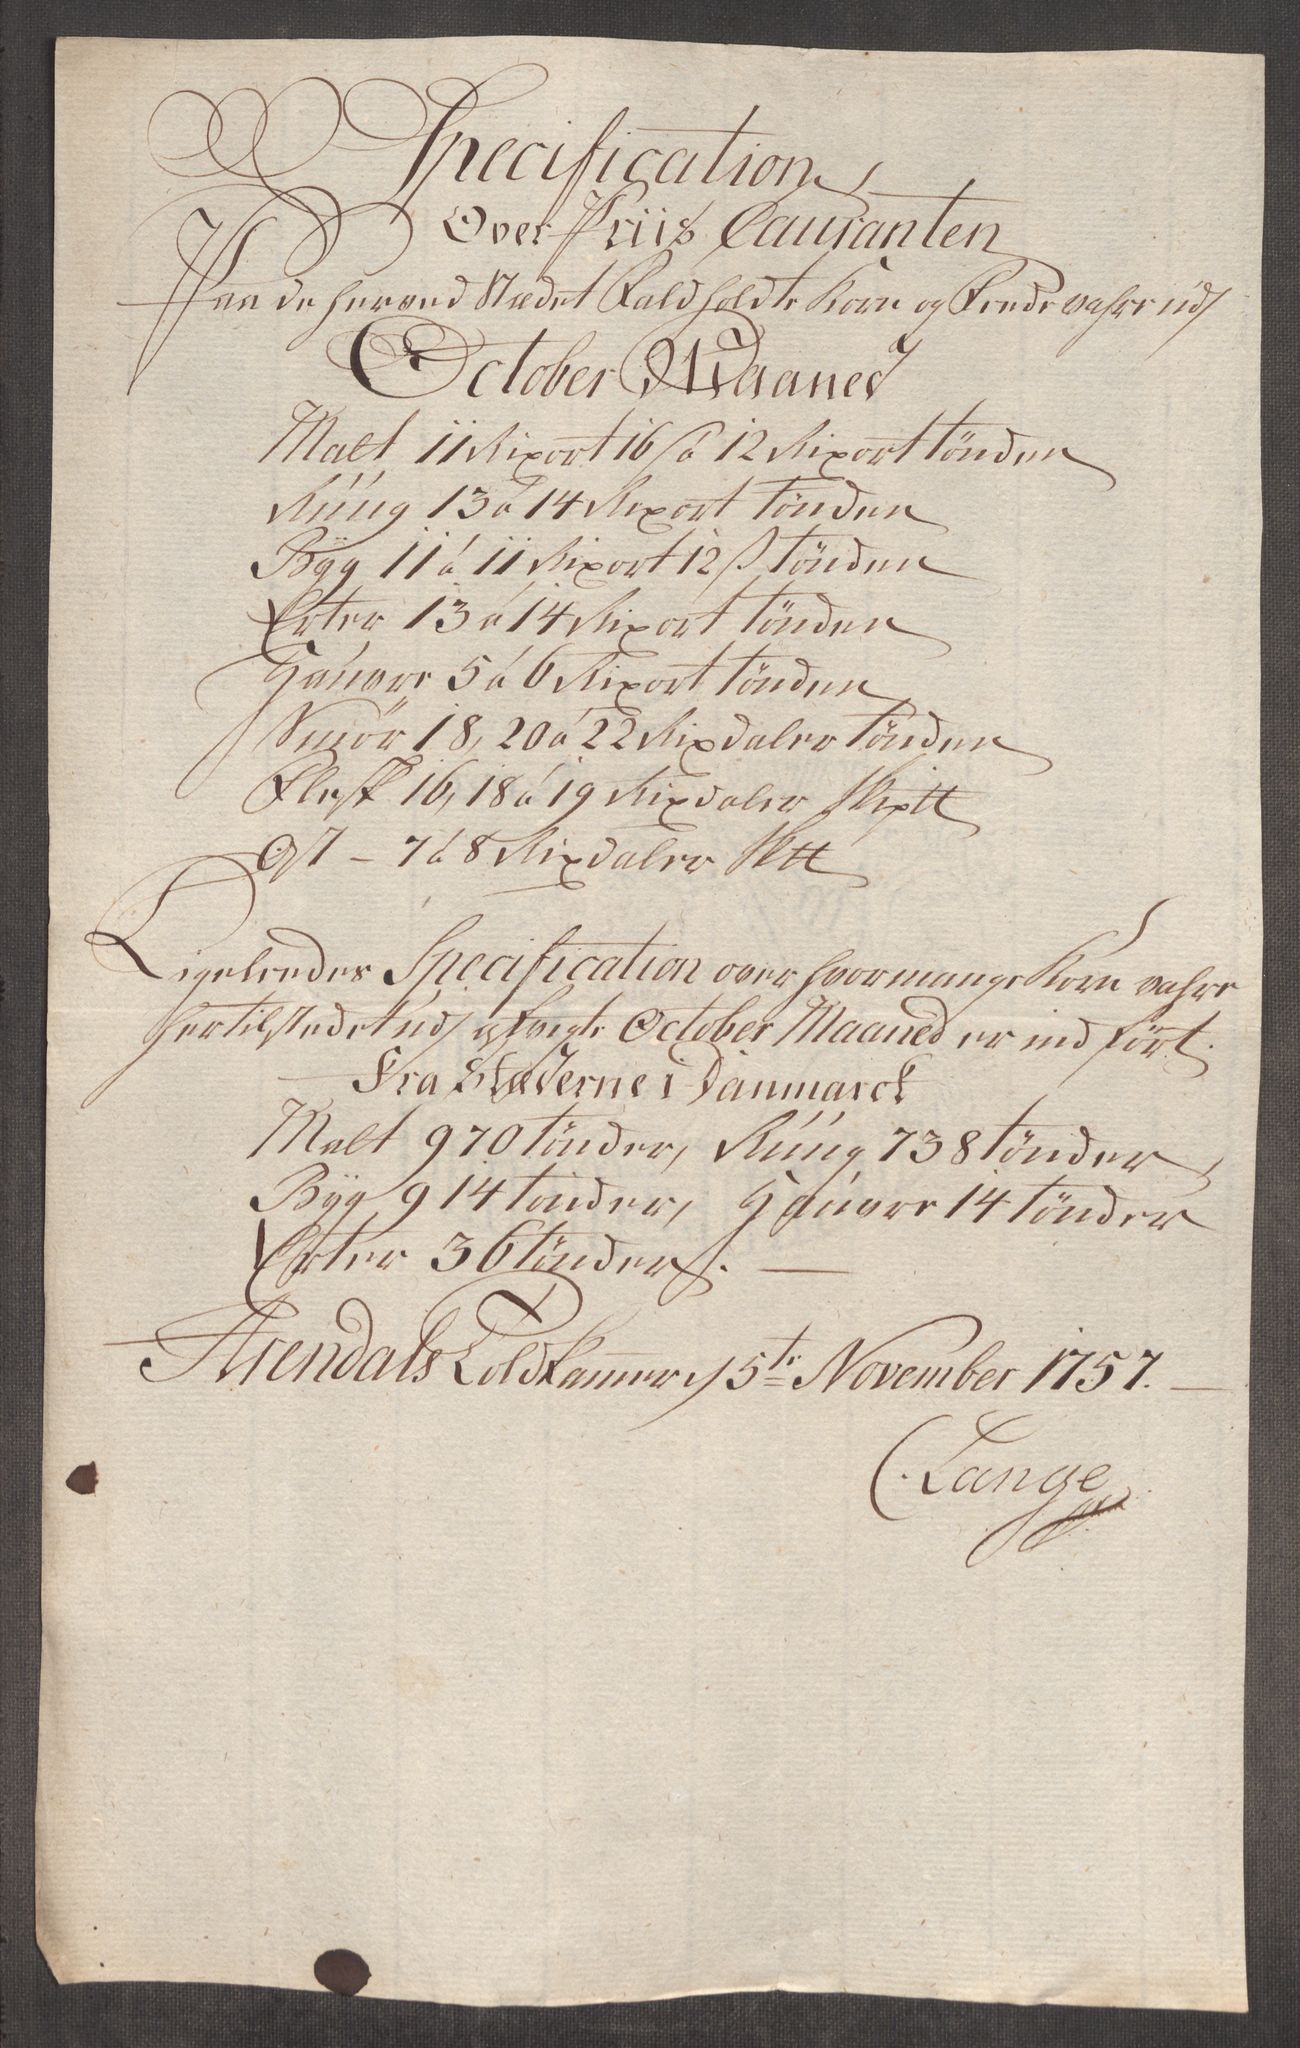 Specification
Over Priis Couranten
Paa de her ved Stædet Faldholdte Korn og Feede vahre udj
October Maaned
Malt 11 Rixort 16 s a 12 Rixort tönden
Rúúg 13 a 14 Rixort tönden
Byg 11 á 11 Rixort 12 s tönden
Erter 13 á 14 Rixort tönden
Haúvre 5 á 6 Rixort tönden
Smör 18, 20 á 22 Rixdaler tönden
Flesk 16, 18 á 19 Rixdaler Skp℔
Ost – 7 á 8 Rixdaler Sk℔
Ligeleedes Specification over hvormange Korn vahre
hertilstedet udj October Maaned er ind fört.
Fra Stæderne i Danmarck
Malt 970 tönder, Rúúg 738 tönder
Byg 914 tönder, Haúvre 14 tönder
Erter 36 tönder. —
Arendals Toldkammer, 5te November 1757. —
C. Lange